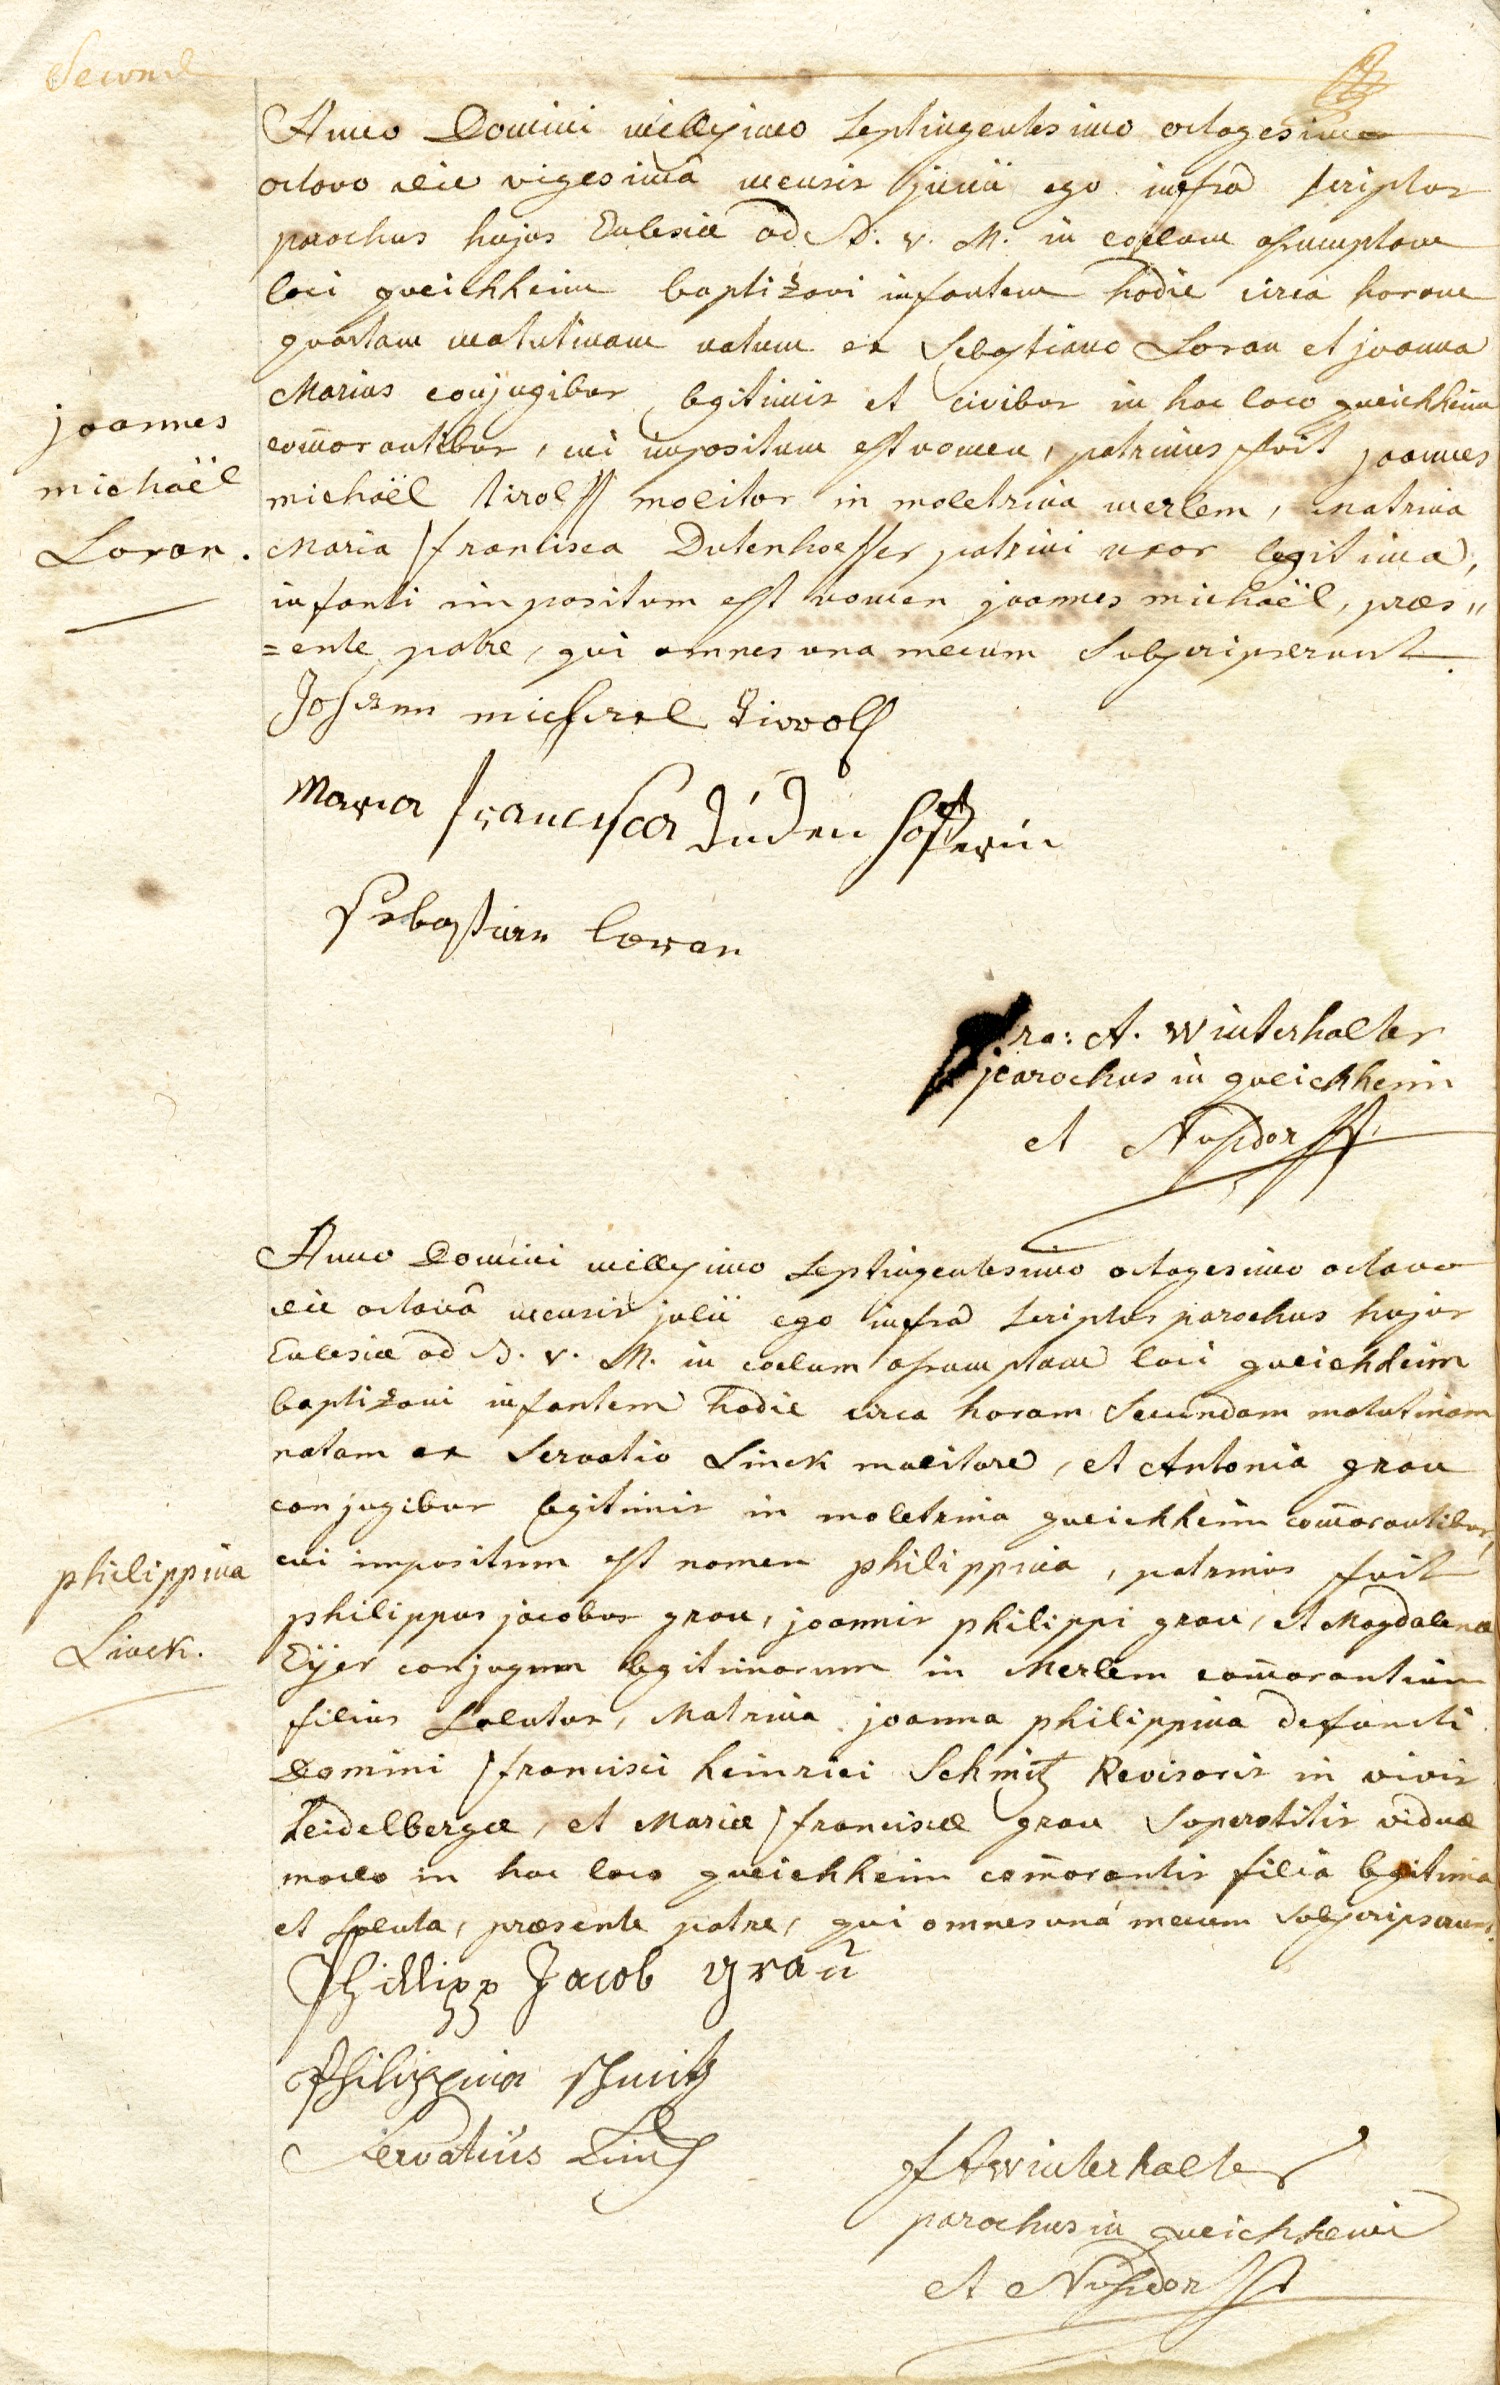 Second
Anno Domini millesimo septingentesimo octogesimo
octavo die vigesimâ mensis junii ego infra scriptus
parochus hujus Eclesiæ ad B. v. M. in coelum assumptam
loci queichheim baptizavi infantem hodie circa horam
quartam matutinam natum ex Sebastiano Loran et joanna
Marius conjugibus legitimis et civibus in hoc loco queichheim
com̄orantibus, cui impositum est nomen, patrinus fuit joannes
michaël tirolff molitor in moletrina merlem, matrina
Maria francisca Dutenhoeffer patrini uxor legitima,
infanti impositum est nomen joannes michaël, præs"
=ente patre, qui omnes una mecum subscripserunt.
joannes
michaël
Loran.
Johann michael Tirolf
Maria francisca Düdenhöfferin
Sebastian Loran
fra: A. Winterhalter
parochus in queichheim
et Nusdorff.
Anno Domini millesimo septingentesimo octogesimo octavo
die octavâ mensis julii ego infra scriptus parochus hujus
Eclesiæ ad B. v. M. in coelum assumptam loci queichheim
baptizavi infantem hodie circa horam secundam matutinam
natam ex Servatio Linck molitore, et Antonia grau
conjugibus legitimis in moletrina queichheim com̄orantibus,
cui impositum est nomen philippina, patrinus fuit
philippus jacobus grau, joannis philippi grau, et Magdalenæ
Eÿer conjugum legitimorum in Merlem com̄orantium
filius solutus, Matrina joanna philippina defuncti
Domini francisci heinrici Schmitz Revisoris in vivis
heidelbergæ, et Mariæ franciscæ grau superstitis viduæ
modo in hoc loco queichheim com̄orantis filia legitima
et soluta, præsente patre, qui omnes unà mecum subscripserunt.
philippina
Linck.
Phillipp Jacob grau
Philippina Schmitz
Servatius Linck
f A winterhalter
parochus in queichheim
et Nusdorff